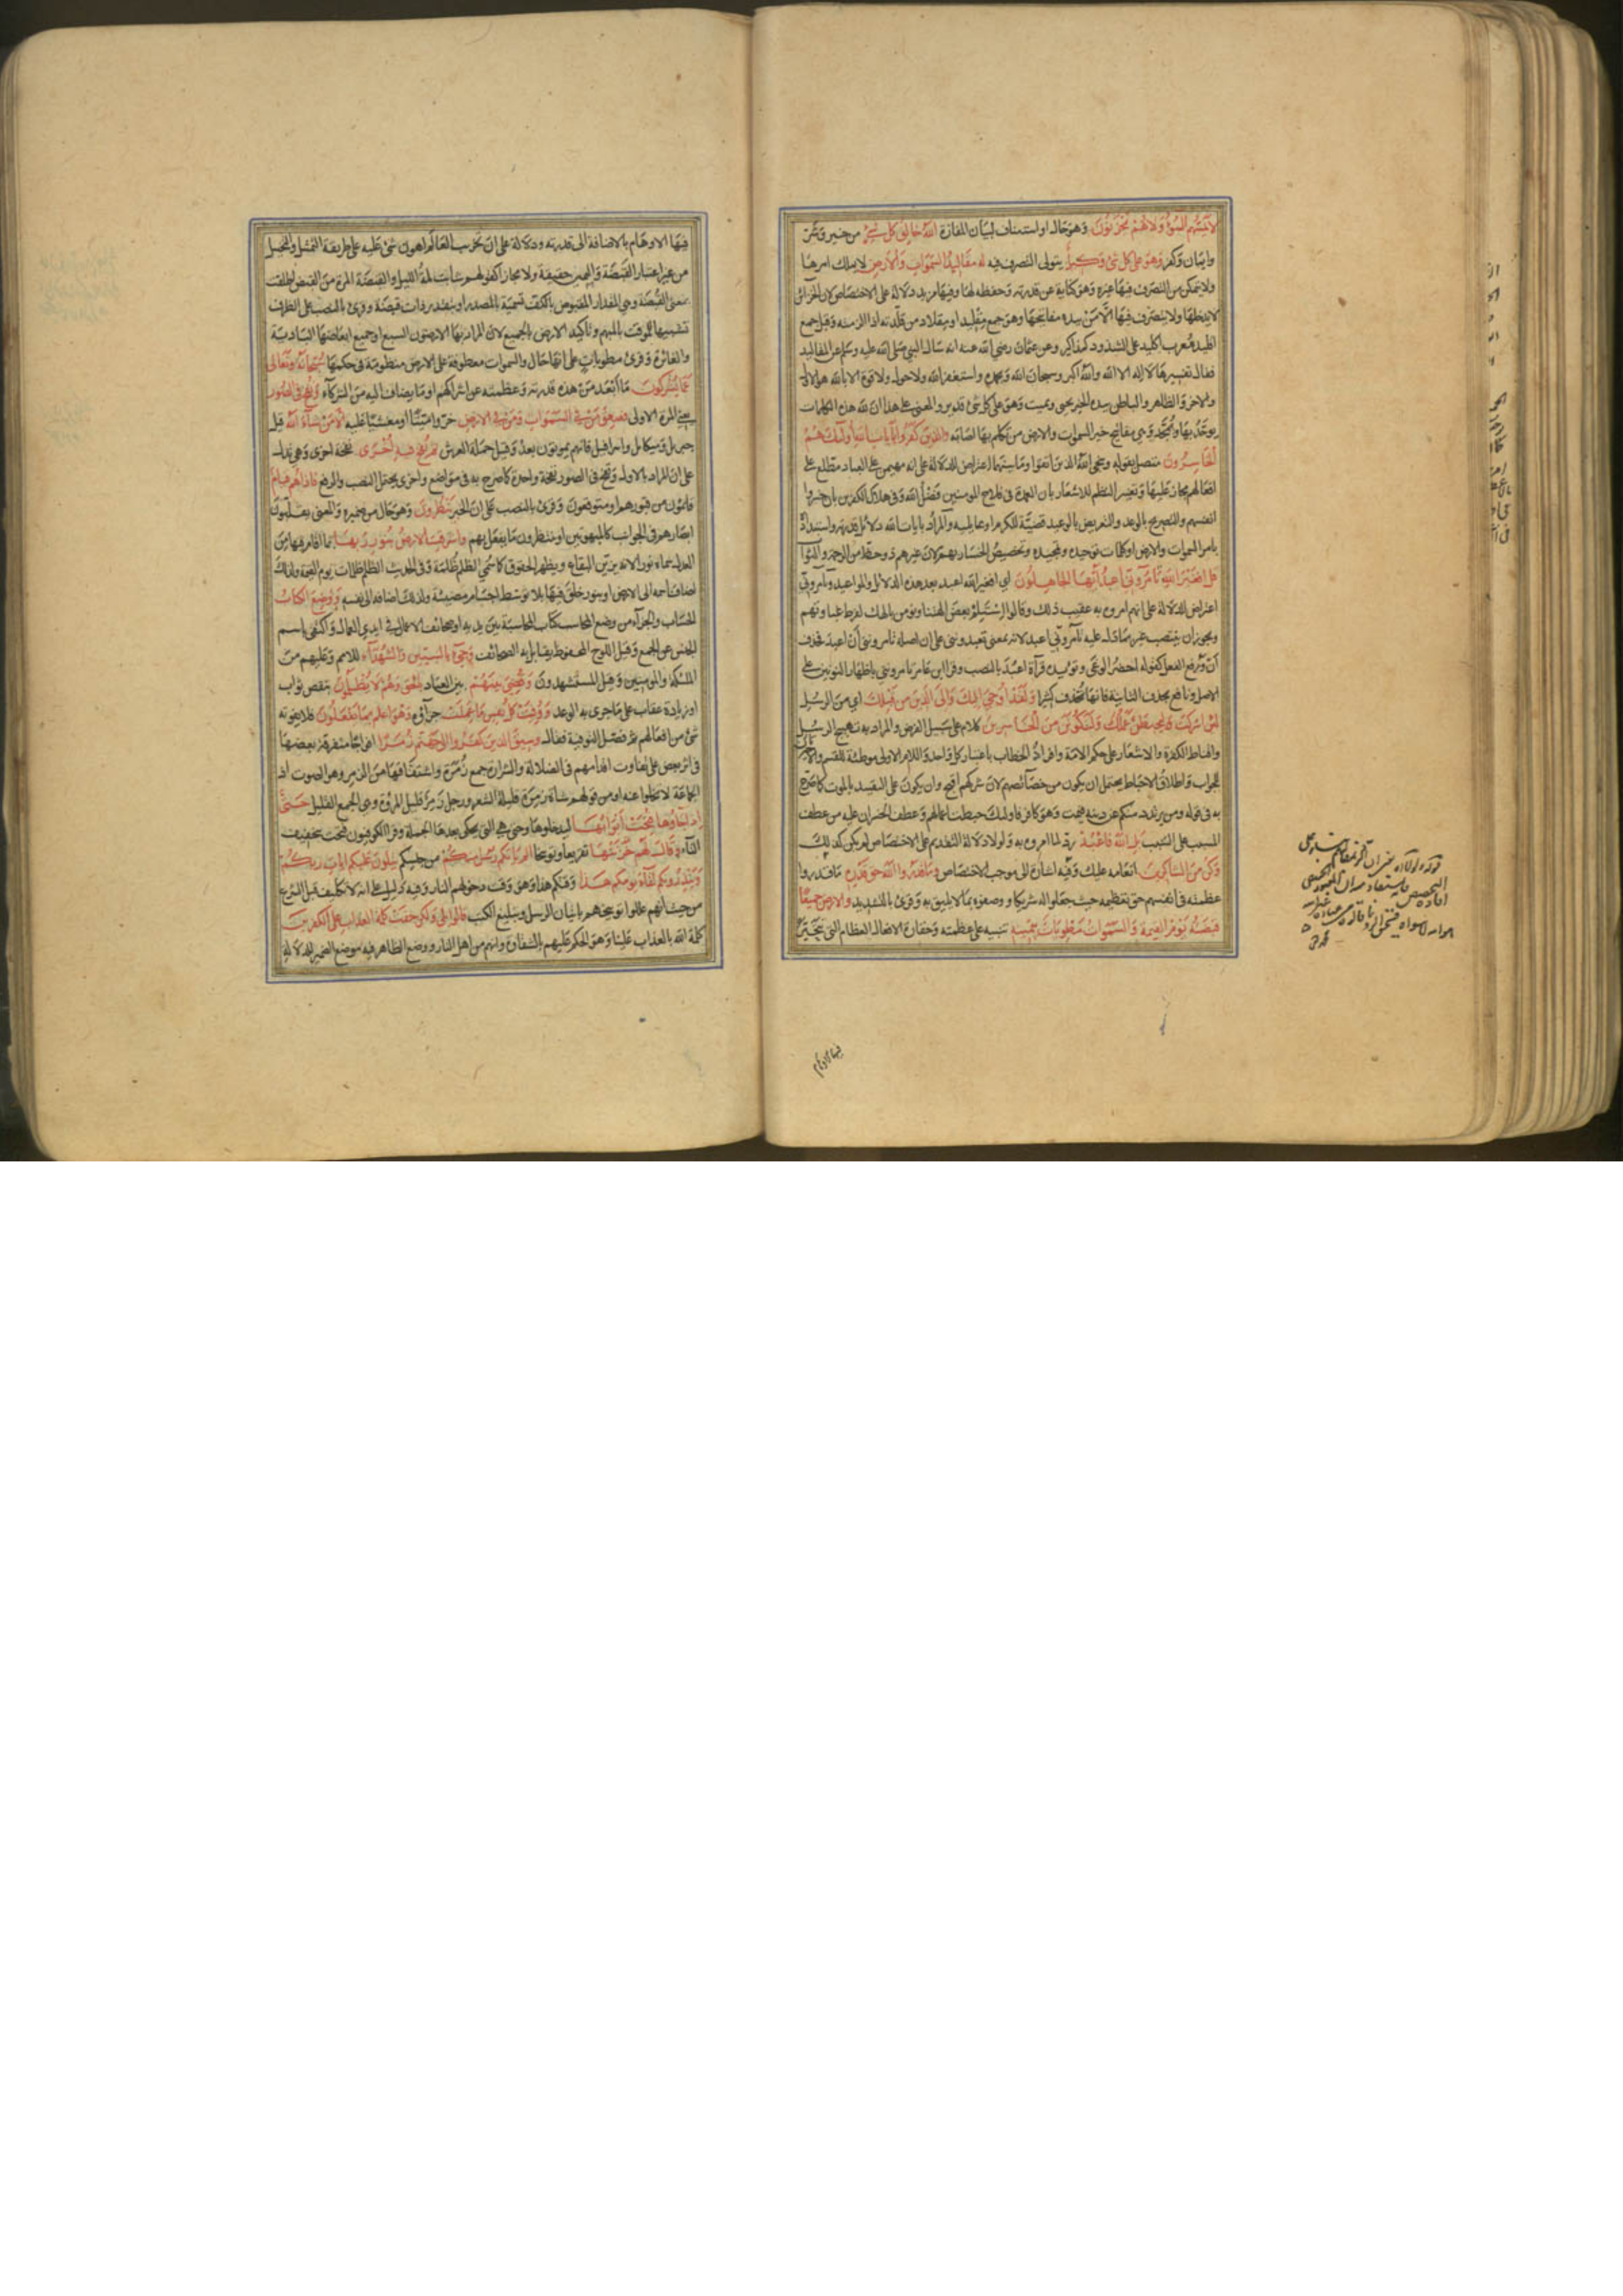 لَا يَمَسُّهُمُ السُّوءُ وَلَا هُمْ يَحْزَنُونَ وهو حال او استيناف لبيان المفازة اللَّهُ خَالِقُ كُلِّ شَيْءٍ من خير وشر
وايمان وكفر وَهُوَ عَلَى كُلِّ شَيْءٍ وَكِيلٌ يتولى التصرف فيه لَهُ مَقَالِيدُ السَّمَوَاتِ وَالْأَرْضِ لا يملك امرها
ولا يتمكن من التصرف فيها غيره وهو كناية عن قدرته وحفظه لها وفيها مزيد دلالة على الاختصاص لان الخزائن
لا يدخلها ولا يتصرف فيها الا من بيده مفاتيحها وهو جمع مقليد او مقلاد من قلدته اذا الزمته وقيل جمع
اقليد معرب اكليد على الشذوذ كمذاكير وعن عثمان رضي الله عنه انه سأل النبي صلى الله عليه وسلم عن المقاليد
فقال تفسيرها لا اله الا الله والله اكبر وسبحان الله وبحمده واستغفر الله ولا حول ولا قوة الا بالله هو الاول
والاخر والظاهر والباطن بيده الخير يحيي ويميت وهو على كل شئ قدير والمعنى على هذا ان لله هذه الكلمات
يوحد بها ويمجد وهي مفاتيح خير السموات والارض من تكلم بها اصابه وَالَّذِينَ كَفَرُوا بِآيَاتِ اللَّهِ أُولَئِكَ هُمُ
الْخَاسِرُونَ متصل بقوله وينجي الله الذين اتقوا وما بينهما اعتراض للدلالة على انه مهيمن على العباد مطلع على
افعالهم مجاز عليها وتغيير النظم للاشعار بان العمدة في فلاح المومنين فضل الله وفي هلاك الكفرين بان خسروا
انفسهم والتصريح بالوعد والتعريض بالوعيد قضية للكرم او بما يليه والمراد بايات الله دلائل قدرته واستبداده
بامر السموات والارض او كلمات توحيده وتمجيده وتخصيص الخسار بهم لان غيرهم ذو حظ من الرحمة والثواب
قُلْ أَفَغَيْرَ اللَّهِ تَأْمُرُونِّي أَعْبُدُ أَيُّهَا الْجَاهِلُونَ اي افغير الله اعبد بعد هذه الدلائل والمواعيد وتأمروني
اعتراض للدلالة على انهم امروه به عقيب ذلك وقالوا استلم بعض الهتنا ونؤمن بالهك لفرط غباوتهم
ويجوز ان ينتصب غير بما دل عليه تامروني اعبد لانه بمعنى تعبدونني على ان اصله تامرونني أن اعبد فحذف
أن ورفع الفعل كقوله احضر الوغى ويؤيده قرآة اعبد بالنصب وقرا ابن عامر تامرونني باظهار النونين على
الاصل ونافع بحذف الثانية فانها تحذف كثيرا وَلَقَدْ أُوحِيَ إِلَيْكَ وَإِلَى الَّذِينَ مِنْ قَبْلِكَ اي من الرسل
لَئِنْ أَشْرَكْتَ لَيَحْبَطَنَّ عَمَلُكَ وَلَتَكُونَنَّ مِنَ الْخَاسِرِينَ كلام على سبيل الفرض والمراد به تهييج الرسل
واقناط الكفرة والاشعار على حكم الامة وافراد الخطاب باعتبار كل واحد واللام الاولى موطئة للقسم والاخريان
للجواب واطلاق الاحباط يحتمل ان يكون من خصائصهم لان شركهم اقبح وان يكون على التقييد بالموت كما صرح
به في قوله ومن يرتدد منكم عن دينه فيمت وهو كافر فاولئك حبطت اعمالهم وعطف الخسران عليه من عطف
المسبب على السبب بَلِ اللَّهَ فَاعْبُدْ رد لما امروه به ولولا دلالة التقديم على الاختصاص لم يكن كذلك
وَكُنْ مِنَ الشَّاكِرِينَ انعامه عليك وفيه اشارة الى موجب الاختصاص وَمَا قَدَرُوا اللَّهَ حَقَّ قَدْرِهِ ما قدروا
عظمته في انفسهم حق تعظيمه حيث جعلوا له شريكا ووصفوه بما لا يليق به وقرئ بالتشديد وَالْأَرْضُ جَمِيعًا
قَبْضَتُهُ يَوْمَ الْقِيمَةِ وَالسَّمَوَاتُ مَطْوِيَّاتٌ بِيَمِينِهِ تنبيه على عظمته وحقارة الافعال العظام التي تتحير
فيها الاوهام
فيها الاوهام بالاضافة الى قدرته ودلالة على ان تخريب العالم اهون شئ عليه على طريقة التمثيل والتخييل
من غير اعتبار القبضة واليمين حقيقة ولا مجاز كقولهم شابت لمة الليل والقبضة المرة من القبض اطلقت
بمعنى القبضة وهي المقدار المقبوض بالكف تسمية بالمصدر او بتقدير ذات قبضة وقرئ بالنصب على الظرف
تشبيها للموقت بالمبهم وتاكيد الارض بالجميع لان المراد بها الارضون السبع او جميع ابعاضها البادية
والغائرة وقرئ مطويات على انها حال والسموات معطوفة على الارض منظومة في حكمها سُبْحَانَهُ وَتَعَالَى
عَمَّا يُشْرِكُونَ ما ابعد من هذه قدرته وعظمته عن اشراكهم او ما يضاف اليه من الشركاء وَنُفِخَ فِي الصُّورِ
يعني المرة الاولى فَصَعِقَ مَنْ فِي السَّمَوَاتِ وَمَنْ فِي الْأَرْضِ خر او ميتا او مغشيا عليه إِلَّا مَنْ شَاءَ اللَّهُ قيل
جبريل وميكايل واسرافيل فانهم يموتون بعد وقيل حملة العرش ثُمَّ نُفِخَ فِيهِ أُخْرَى نفخة اخرى وهي تدل
على ان المراد بالاولى ونفخ في الصور نفخة واحدة كما صرح به في مواضع واخرى يحتمل النصب والرفع فَإِذَا هُمْ قِيَامٌ
قائمون من قبورهم او متوقفون وقرئ بالنصب على ان الخبر يَنْظُرُونَ وهو حال من ضميره والمعنى يقلبون
ابصارهم في الجوانب كالمبهوتين او ينتظرون ما يفعل بهم وَأَشْرَقَتِ الْأَرْضُ بِنُورِ رَبِّهَا بما اقام فيها من
العدل سماه نورا لانه يزين البقاع ويظهر الحقوق كما سمي الظلم ظلمة وفي الحديث الظلم ظلمات يوم القيمة ولذلك
اضاف اسمه الى الارض او بنور خلق فيها بلا توسط اجسام مضيئة ولذلك اضافه الى نفسه وَوُضِعَ الْكِتَابُ
الحساب والجزآء من وضع المحاسب كتاب المحاسبة بين يديه او صحائف الاعمال في ايدي العمال واكتفى باسم
الجنس عن الجمع وقيل اللوح المحفوظ يقابل به الصحائف وَجِيءَ بِالنَّبِيِّينَ وَالشُّهَدَاءِ للامم وعليهم من
الملئكة والمومنين وقيل المستشهدون وَقُضِيَ بَيْنَهُمْ بين العباد بِالْحَقِّ وَهُمْ لَا يُظْلَمُونَ بنقص ثواب
او زيادة عقاب على ما جرى به الوعد وَوُفِّيَتْ كُلُّ نَفْسٍ مَا عَمِلَتْ جزآؤه وَهُوَ أَعْلَمُ بِمَا يَفْعَلُونَ فلا يفوته
شئ من افعالهم ثم فصل التوفية فقال وَسِيقَ الَّذِينَ كَفَرُوا إِلَى جَهَنَّمَ زُمَرًا افواجا متفرقة بعضها
في اثر بعض على تفاوت اقدامهم في الضلالة والشرارة جمع زمرة واشتقاقها من الزمر وهو الصوت اذ
الجماعة لا تخلوا عنه او من قولهم شاة زمرة قليلة الشعر ورجل زمر قليل المروة وهي الجمع القليل حَتَّى
إِذَا جَاؤُهَا فُتِحَتْ أَبْوَابُهَا ليدخلوها وحتى هي التي يحكى بعدها الجملة وقرا الكوفيون فتحت بتخفيف
التآء وَقَالَ لَهُمْ خَزَنَتُهَا تقريعا وتوبيخا أَلَمْ يَأْتِكُمْ رُسُلٌ مِنْكُمْ من جنسكم يَتْلُونَ عَلَيْكُمْ آيَاتِ رَبِّكُمْ
وَيُنْذِرُونَكُمْ لِقَاءَ يَوْمِكُمْ هَذَا وقتكم هذا وهو وقت دخولهم النار وفيه دليل على انه لا تكليف قبل الشرع
من حيث انهم عللوا توبيخهم باتيان الرسل وتبليغ الكتب قَالُوا بَلَى وَلَكِنْ حَقَّتْ كَلِمَةُ الْعَذَابِ عَلَى الْكَفِرِينَ
كلمة الله بالعذاب علينا وهو الحكم عليهم بالشقاوة وانهم من اهل النار ووضع الظاهر فيه موضع الضمير للدلالة